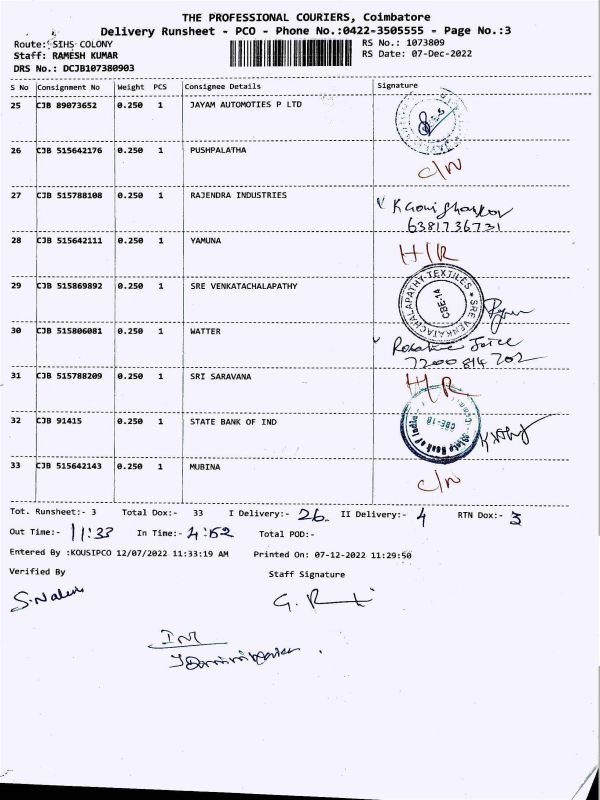 THE PROFESSIONAL COURIERS, Coimbatore
Delivery Runsheet - PCO - Phone No.:0422-3505555 - Page No.:3
Route: SIHS COLONY
RS No.: 1073809
Staff: RAMESH KUMAR
RS Date: 07-Dec-2022
DRS No.: DCJB107380903
S No Consignment No Weight PCS Consignee Details Signature
25 CJB 89073652 0.250 1 JAYAM AUTOMOTIES P LTD
26 CJB 515642176 0.250 1 PUSHPALATHA C/N
27 CJB 515788108 0.250 1 RAJENDRA INDUSTRIES
6381736731
28 CJB 515642111 0.250 1 YAMUNA H/R
29 CJB 515869892 0.250 1 SRE VENKATACHALAPATHY
SRE VENKATACHALAPATHY TEXTILES
CBE-14
30 CJB 515806081 0.250 1 WATTER
7200 814 202
31 CJB 515788209 0.250 1 SRI SARAVANA H/R
32 CJB 91415 0.250 1 STATE BANK OF IND
State Bank of India
CBE-18
33 CJB 515642143 0.250 1 MUBINA C/N
Tot. Runsheet:- 3 Total Dox:- 33 I Delivery:- 26 II Delivery:- 4 RTN Dox:- 3
Out Time:- 11:33 In Time:- 4:52 Total POD:-
Entered By :KOUSIPCO 12/07/2022 11:33:19 AM Printed On: 07-12-2022 11:29:50
Verified By Staff Signature